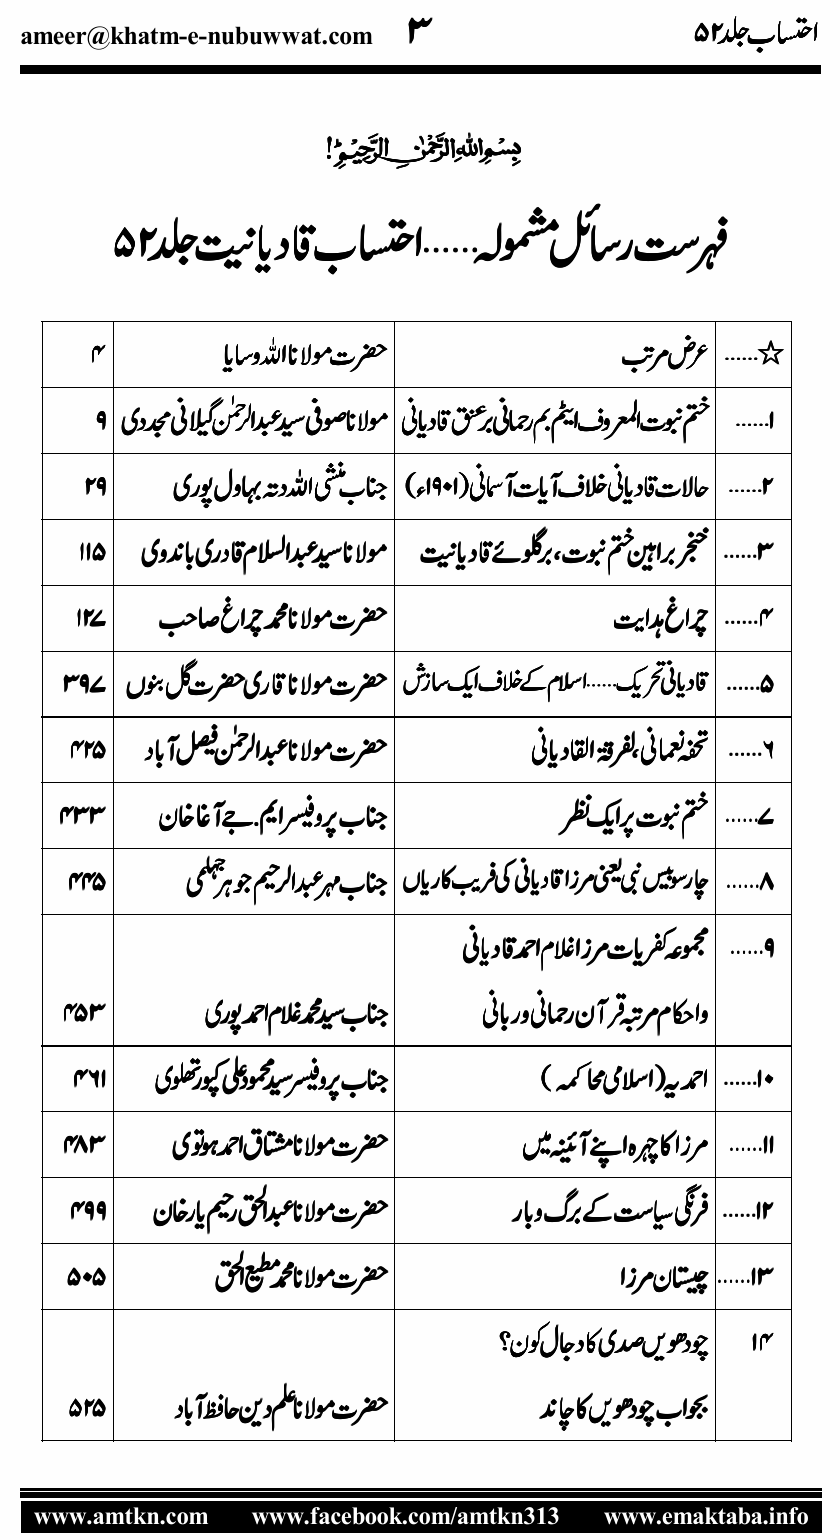 احتساب جلد۵۲ ۳ ameer@khatm-e-nubuwwat.com
بسم اللہ الرحمٰن الرحیم!
فہرست رسائل مشمولہ......احتساب قادیانیت جلد۵۲
☆...... عرض مرتب حضرت مولانا اللہ وسایا ۴
۱...... ختم نبوت المعروف ایٹم بم رحمانی بر عنق قادیانی مولانا صوفی سید عبدالرحمٰن گیلانی مجددی ۹
۲...... حالات قادیانی خلاف آیات آسمانی (۱۹۰۱ء) جناب منشی اللہ دتہ بہاول پوری ۲۹
۳...... خنجر براہین ختم نبوت، بر گلوئے قادیانیت مولانا سید عبدالسلام قادری باندوی ۱۱۵
۴...... چراغ ہدایت حضرت مولانا محمد چراغ صاحب ۱۲۷
۵...... قادیانی تحریک......اسلام کے خلاف ایک سازش حضرت مولانا قاری حضرت گل بنوں ۳۹۷
۶...... تحفہ نعمانی، لفرقۃ القادیانی حضرت مولانا عبدالرحمٰن فیصل آباد ۴۲۵
۷...... ختم نبوت پر ایک نظر جناب پروفیسر ایم. جے آغا خان ۴۳۳
۸...... چار سو بیس نبی یعنی مرزا قادیانی کی فریب کاریاں جناب مہر عبدالرحیم جوہر جہلمی ۴۴۵
۹...... مجموعہ کفریات مرزا غلام احمد قادیانی
واحکام مرتبہ قرآن رحمانی وربانی جناب سید محمد غلام احمد پوری ۴۵۳
۱۰...... احمدیہ (اسلامی محاکمہ) جناب پروفیسر سید محمود علی کپورتھلوی ۴۶۱
۱۱...... مرزا کا چہرہ اپنے آئینہ میں حضرت مولانا مشتاق احمد ہوتوی ۴۸۳
۱۲...... فرنگی سیاست کے برگ وبار حضرت مولانا عبدالحق رحیم یار خان ۴۹۹
۱۳...... چیستان مرزا حضرت مولانا محمد مطیع الحق ۵۰۵
۱۴ چودھویں صدی کا دجال کون؟
بجواب چودھویں کا چاند حضرت مولانا علم دین حافظ آباد ۵۲۵
www.amtkn.com www.facebook.com/amtkn313 www.emaktaba.info